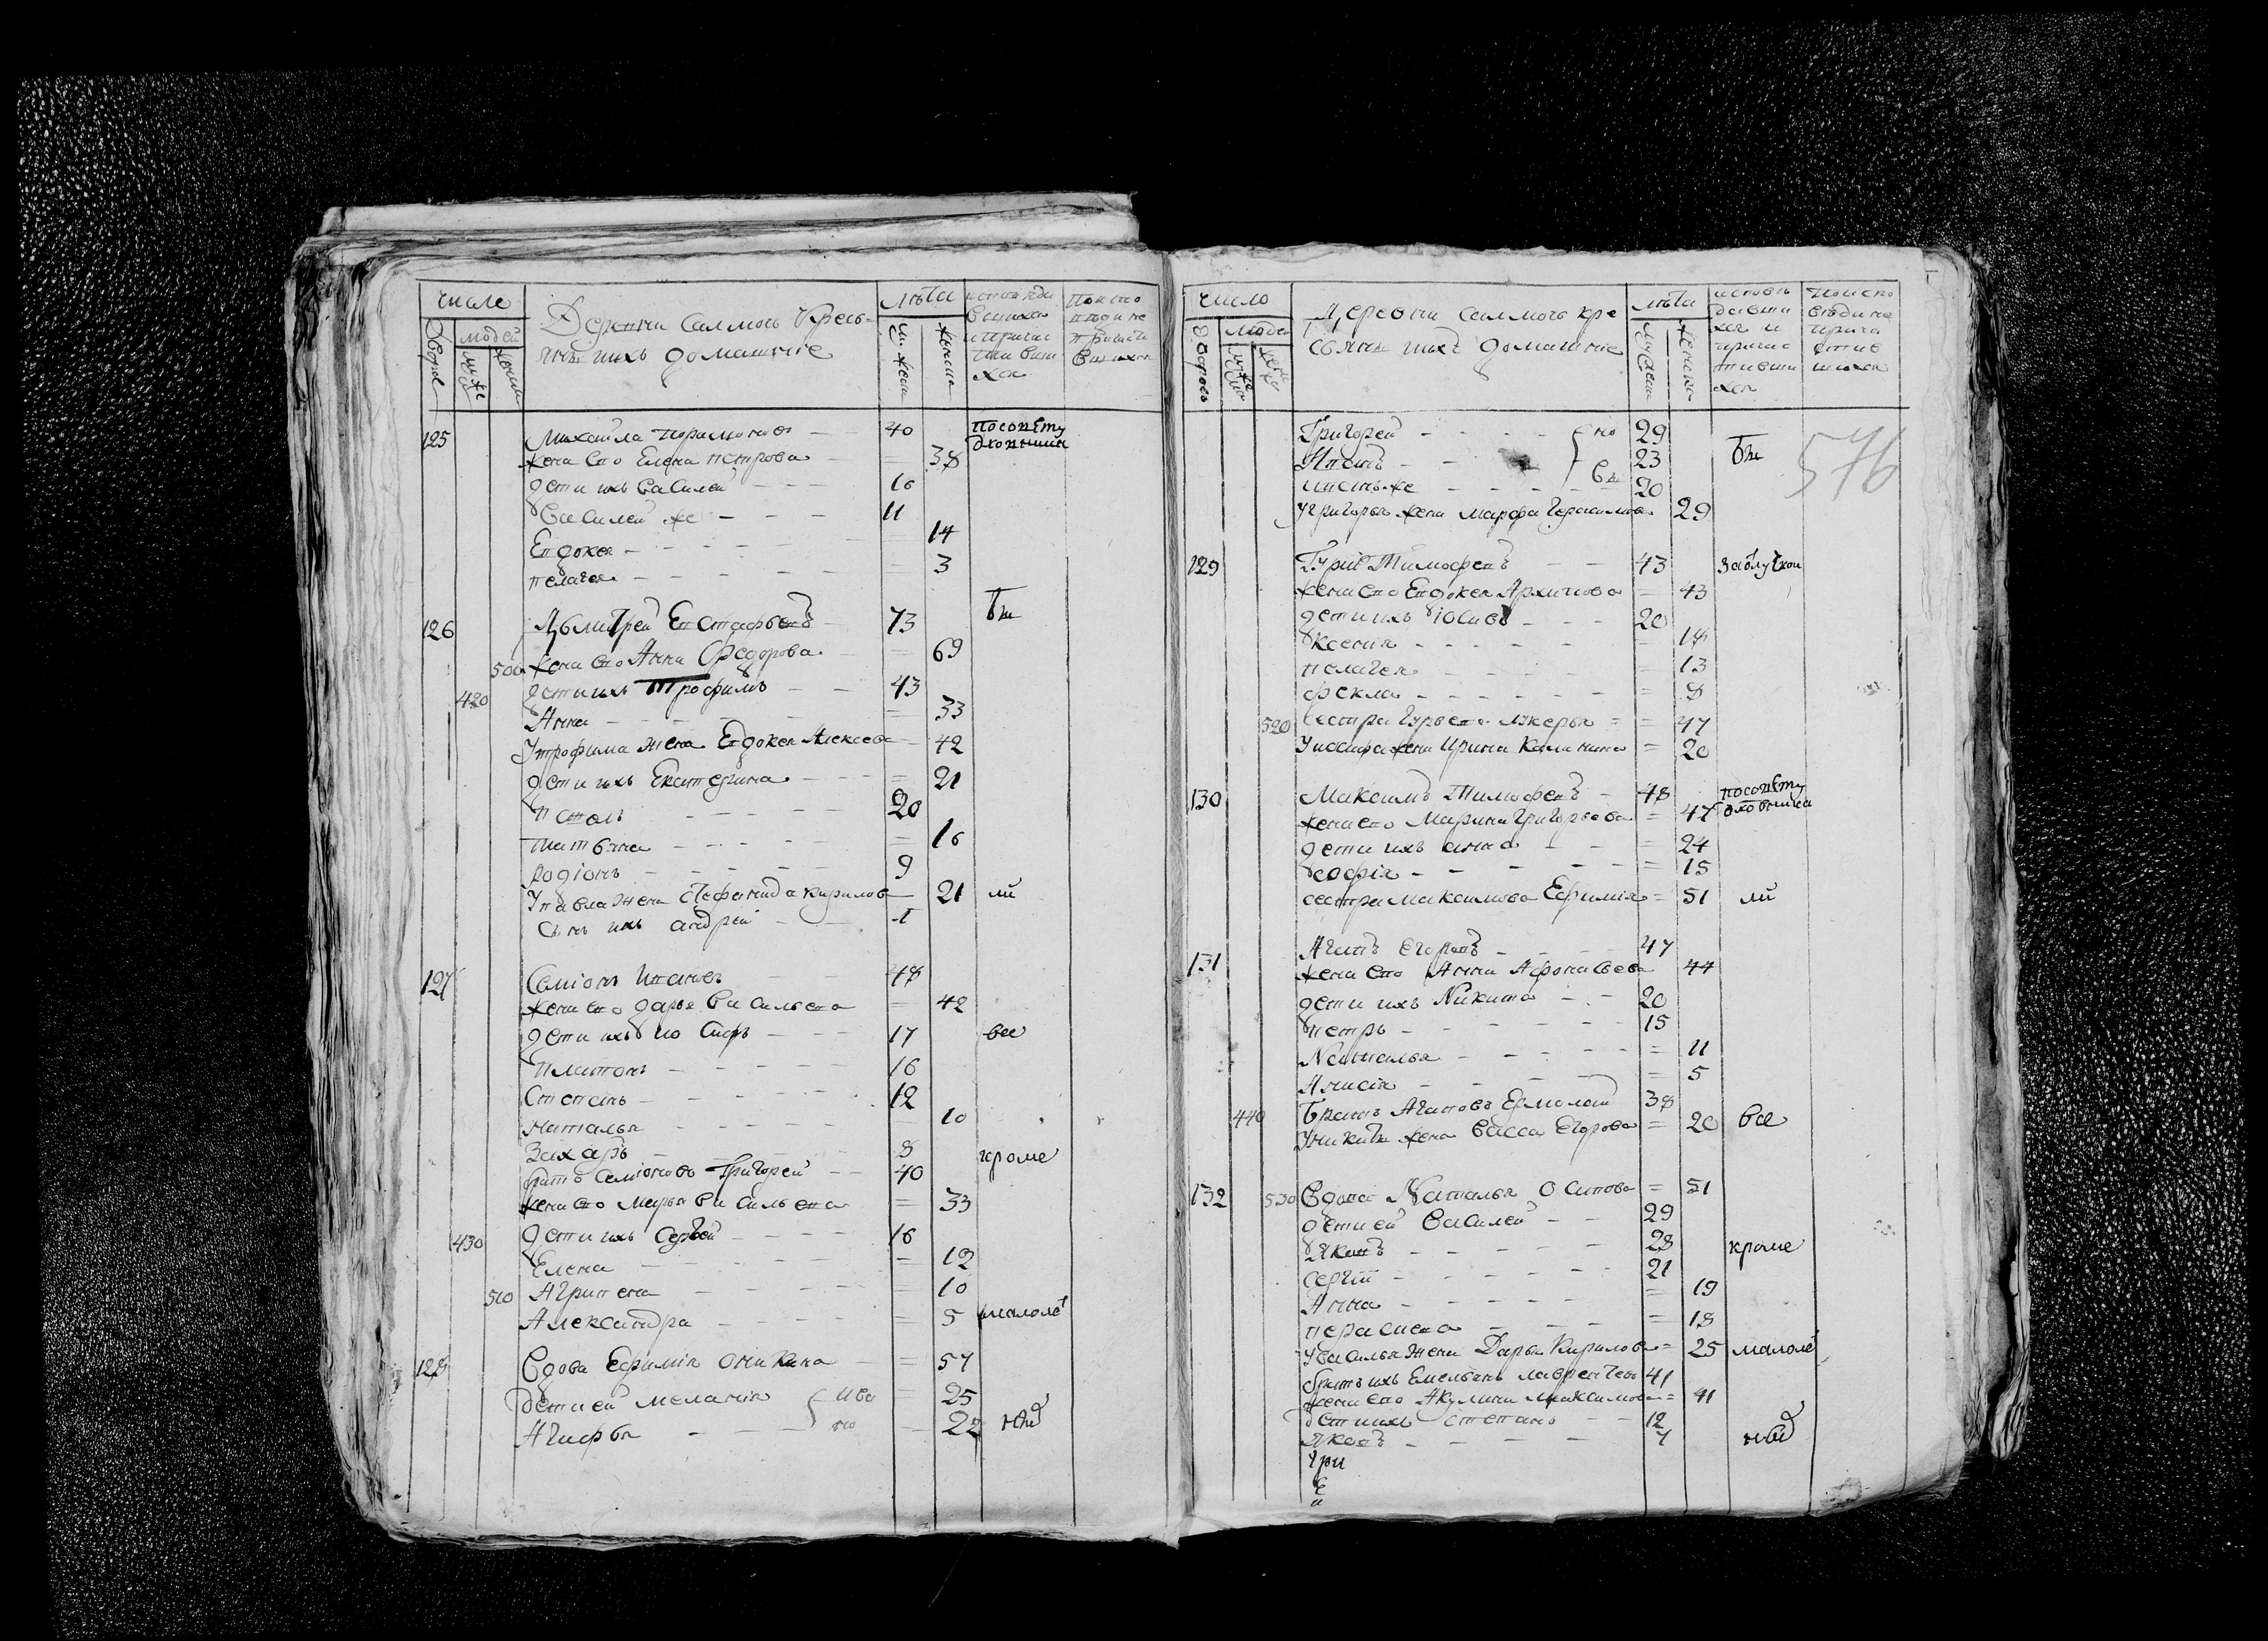 число
Деревни Салмогъ Кресь-
яне ихъ домашние
лета
исповеда
вшихся
и причас
тивши
хся
дворов
людей
мужеск
женск
125 Михаила Парамонов 40 По совету
жена его Елена Петрова 38 духовника
дети ихъ Василей 16
Василей же 11
Евдокея 14
пелагея 3
126 Дьмитрей Евстафьевъ 73 бы
500 жена его Анна Федорова 69
420 дети ихъ Трофимъ 43
Анна 33
У трофима жена Евдокея Алексеева 42
дети ихъ Екатерина 21
Павелъ 20
татьяна 16
родіонъ 9
У павла жена Стефанида кирилов 21 ли
сынъ ихъ андрей 1
127 Семіонъ Ивановъ 48
жена его дарья Васильева 42
дети ихъ Иосифъ 17 все
Платонъ 16
Степанъ 12
Наталья 10
Захаръ 8 кроме
братъ Семіоновъ Григорей 40
жена его Марья Васильева 33
430 дети ихъ Сергей 16
Елена 12
510 Агрипена 10
Александра 5 малоле
128 Вдова Ефимія Аникина 57
дети ей меланія 25
Агафья 22
число
Деревни Салмогъ кре
стьяне ихъ домашние
лета
исповеда
вши
хся и
причас
тивши
хся
по испо
ведине
прича
стив
шихся
дворовъ
576
Григорей 29
Иванъ 23 бы
иванъ же 20
У григорья жена марфа Герасимова 29
129 Гурій Тимофеевъ 43 за отлучкои
жена его Евдокея Архипова 43
дети ихъ Іосифъ 20
Ксенія 18
пелагея 13
фекла 8
520 сестра Гурьева Лукерья 47
У иосифа жена Ирина Калинина 20
130 Максимъ Тимофеевъ 48 по совету
жена его Марина Григорьева 47 духовника
дети ихъ анна 24
софія 15
сестра максимова Ефимія 51 ли
131 Агапъ Егоровъ 47
жена его Анна Афонасьева 44
дети ихъ Никита 20
петръ 15
Наталья 11
Анисія 5
440 Братъ Агаповъ Ермолай 38
У никиты жена Васса Егорова 20 все
132 530 Вдова Наталья Осипова 51
дети ей Василей 29
Яковъ 28 кроме
сергій 21
Анна 19
парасковья 18
У василья жена Дарья Кирилова 25 малоле
братъ ихъ Емельянъ лаврентьев 41
жена его Акулина максимова 41
дети ихъ степанъ 12
Яковъ 7